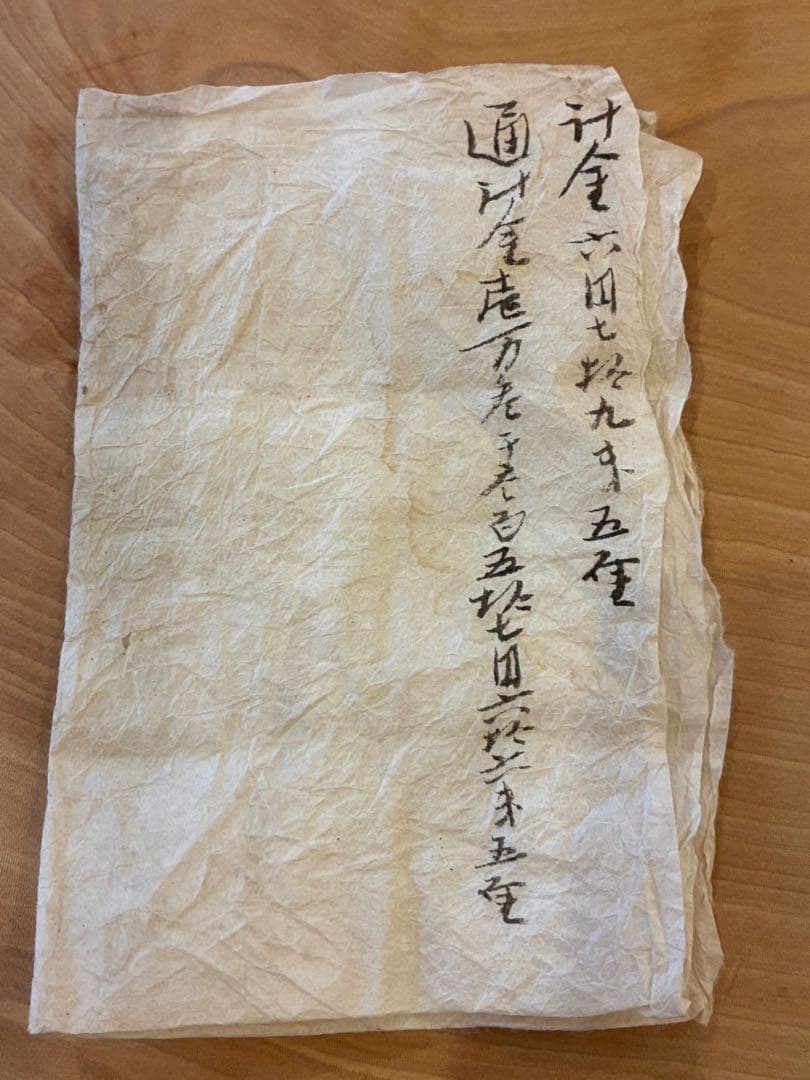 計金六円七拾九銭五厘
通計金壱万参千参百五拾七円六拾六銭五厘